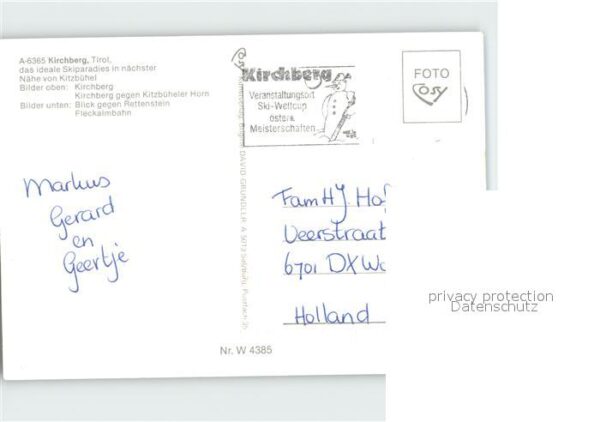 A-6365 Kirchberg, Tirol,
das ideale Skiparadies in nächster
Nähe von Kitzbühel
Bilder oben: Kirchberg
Kirchberg gegen Kitzbüheler Horn
Bilder unten: Blick gegen Rettenstein
Fleckalmbahn
Kirchberg
Veranstaltungsort
Ski-Weltcup
österr.
Meisterschaften
FOTO
Markus
Gerard
en
Geertje
Fam HJ Hof
Veerstraat
6701 DX Wa
Holland
privacy protection
Datenschutz
Nr. W 4385